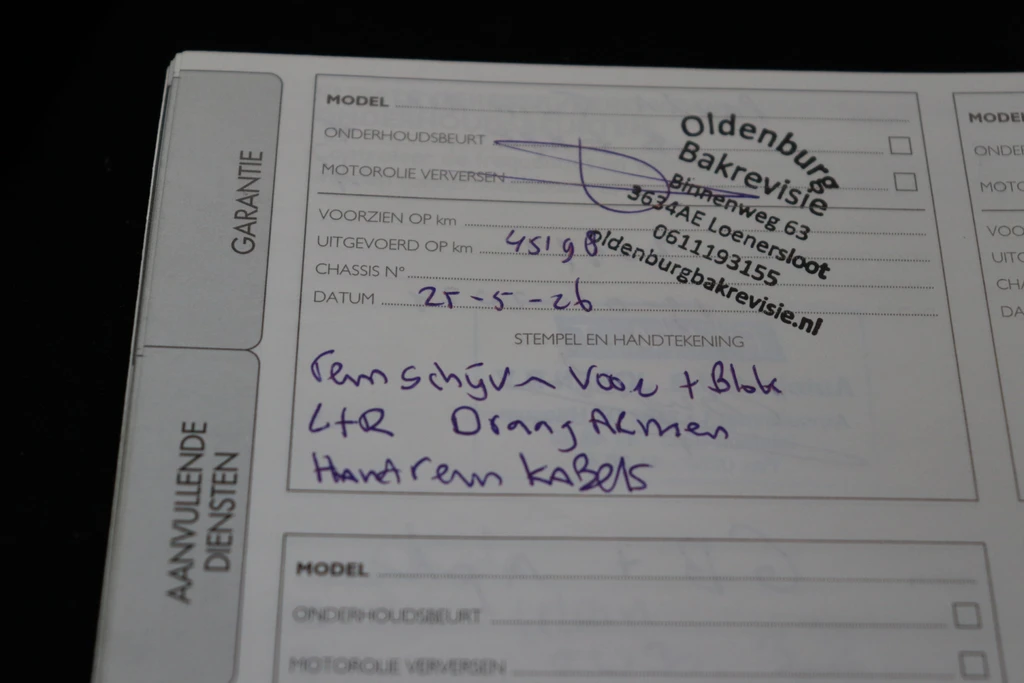 GARANTIE
AANVULLENDE
DIENSTEN
MODEL
ONDERHOUDSBEURT
MOTOROLIE VERVERSEN
VOORZIEN OP km
UITGEVOERD OP km 45198
CHASSIS N°
DATUM 25-5-26
Oldenburg
Bakrevisie
Binnenweg 63
3634AE Loenersloot
0611193155
oldenburgbakrevisie.nl
STEMPEL EN HANDTEKENING
remschijven voor + Blok
L+R Draag Armen
Handrem KABels
MODEL
ONDERHOUDSBEURT
MOTOROLIE VERVERSEN
MODEL
ONDE
MOTO
VOO
UITG
CHA
DA